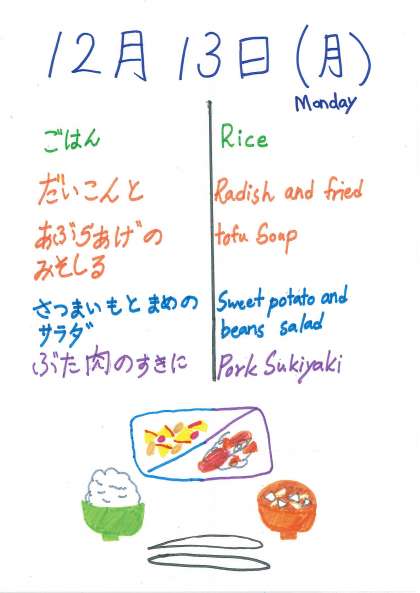 12月13日(月)
Monday
ごはん
Rice
だいこんと
あぶらあげの
みそしる
Radish and fried
tofu Soup
さつまいもとまめの
サラダ
Sweet potato and
beans salad
ぶた肉のすきに
Pork Sukiyaki